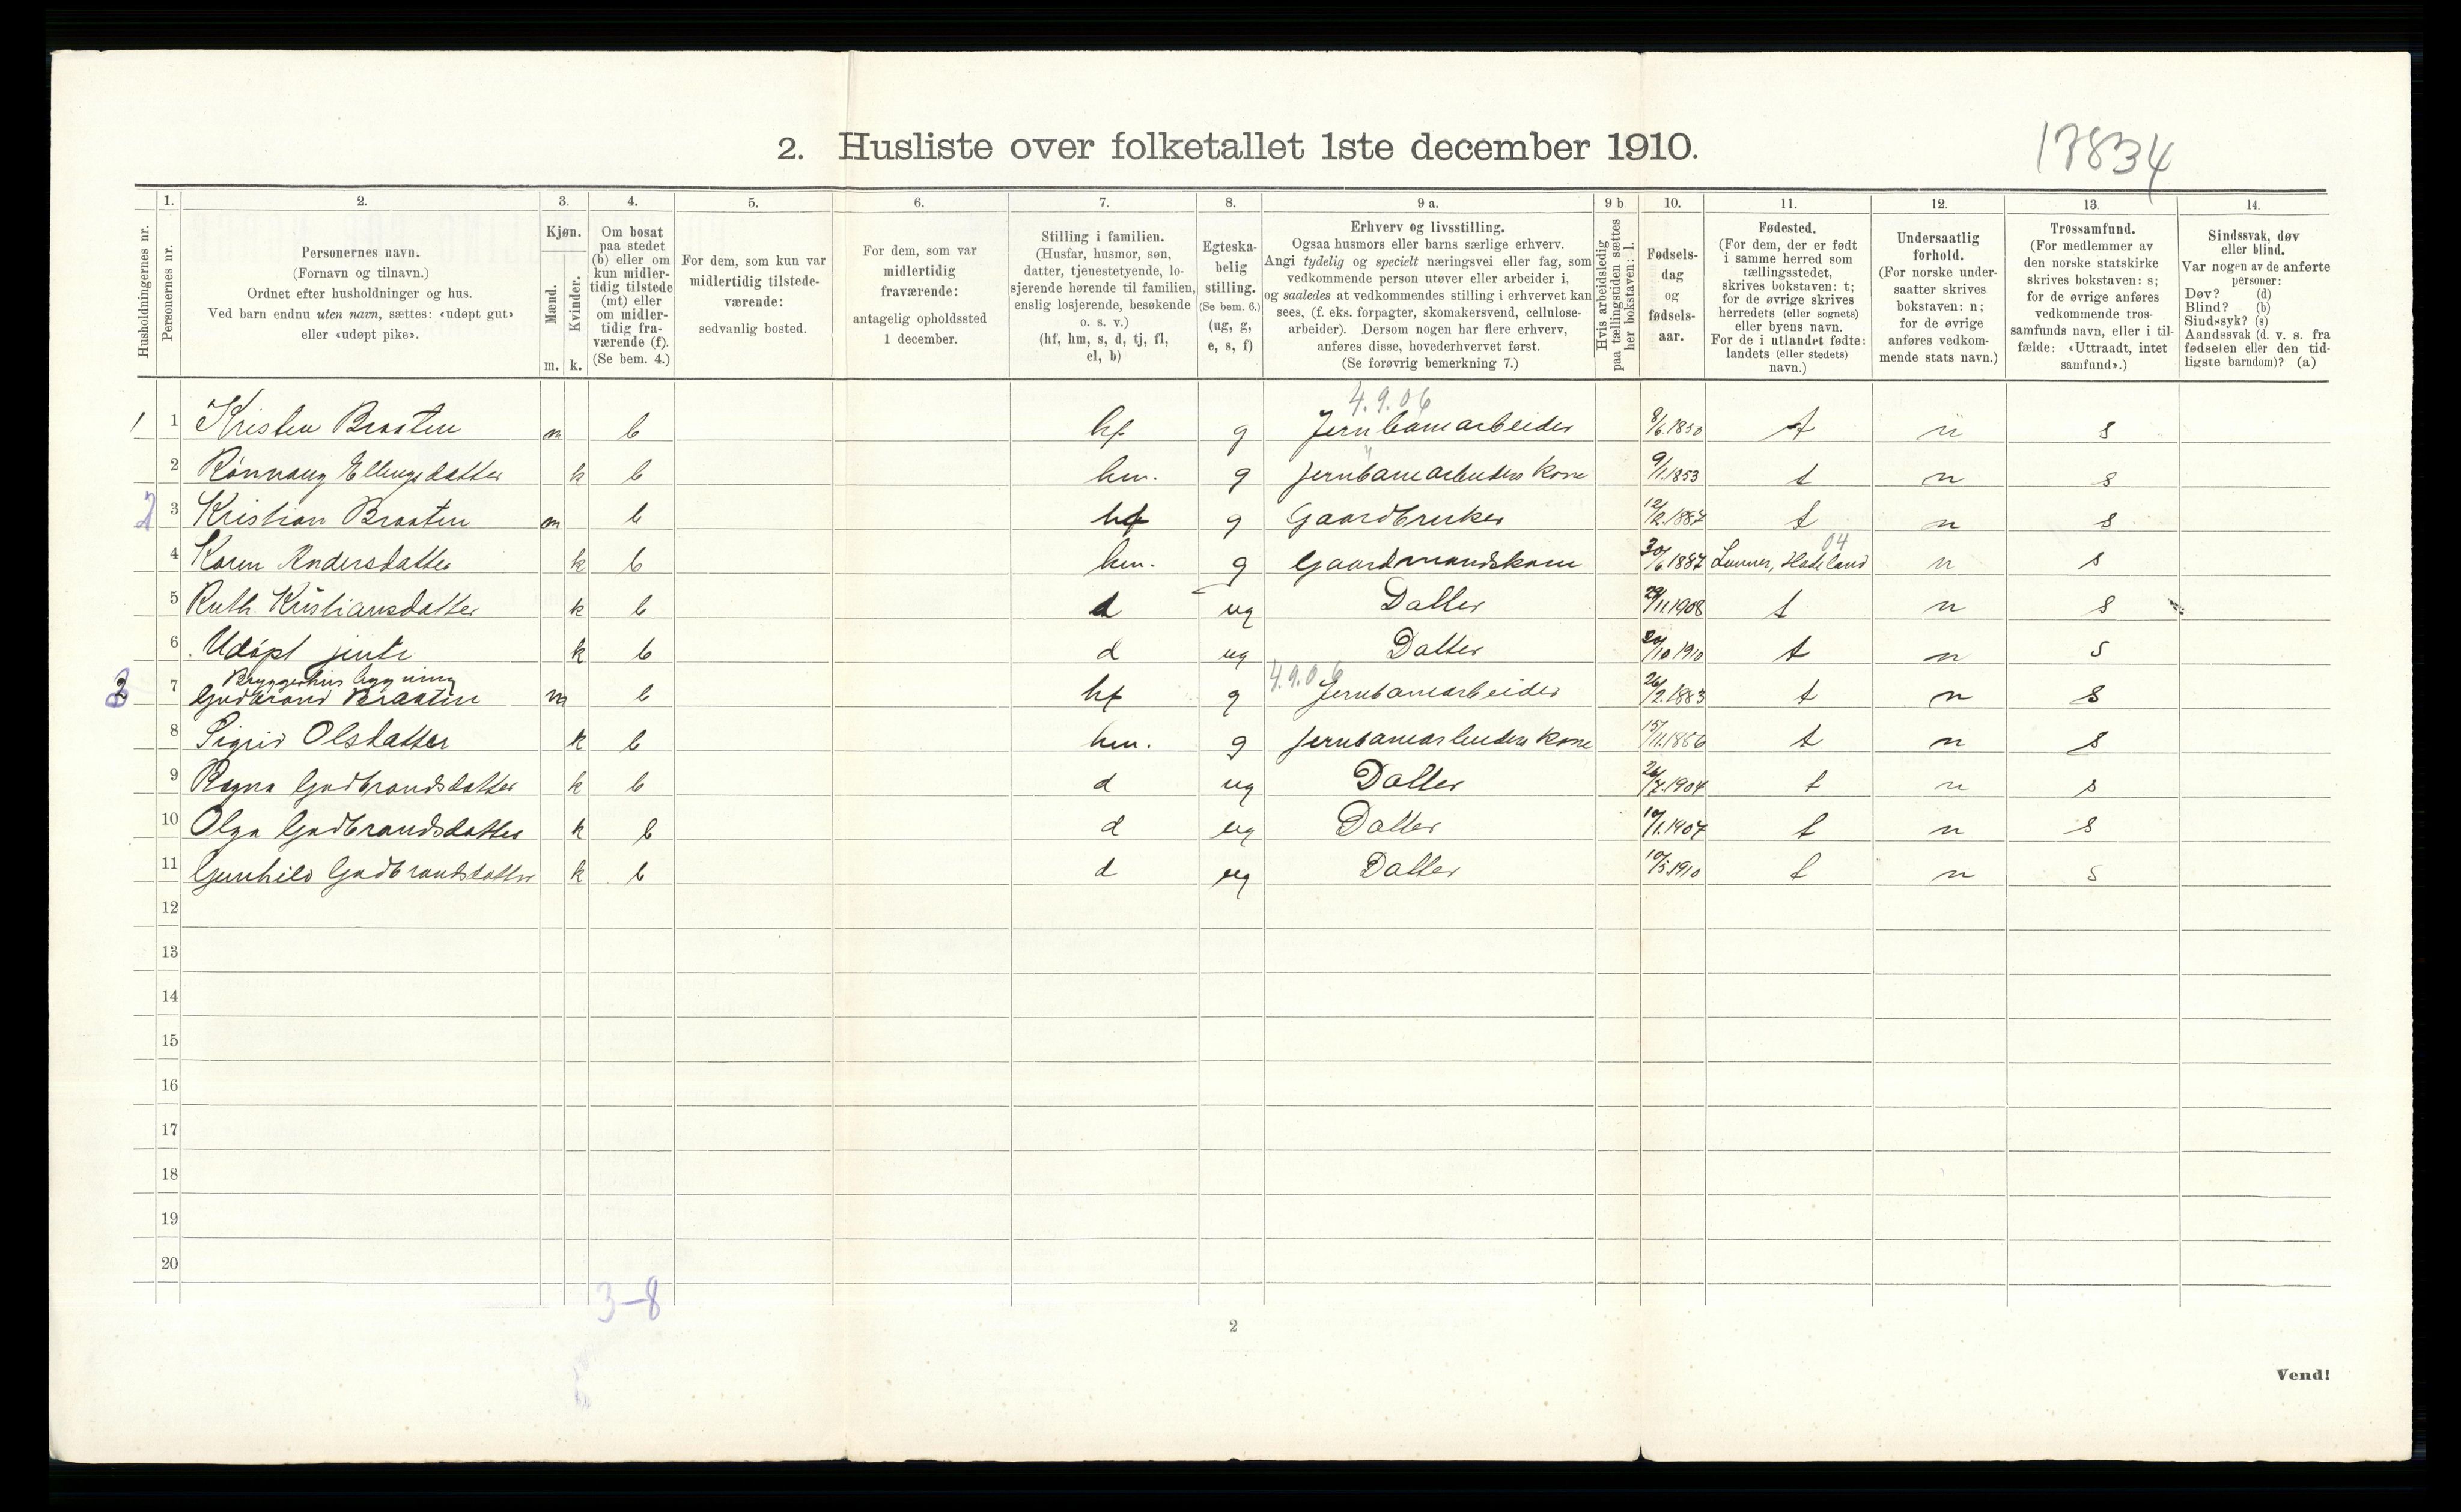 17834
2. Husliste over folketallet 1ste december 1910.
Husholdningernes nr.
1. Personernes nr.
2. Personernes navn.
(Fornavn og tilnavn.)
Ordnet efter husholdninger og hus.
Ved barn endnu uten navn, sættes: «udøpt gut»
eller «udøpt pike».
3. Kjøn.
Mænd. m.
Kvinder. k.
4. Om bosat
paa stedet
(b) eller om
kun midler-
tidig tilstede
(mt) eller
om midler-
tidig fra-
værende (f).
(Se bem. 4.)
5. For dem, som kun var
midlertidig tilstede-
værende:
sedvanlig bosted.
6. For dem, som var
midlertidig
fraværende:
antagelig opholdssted
1 december.
7. Stilling i familien.
(Husfar, husmor, søn,
datter, tjenestetyende, lo-
sjerende hørende til familien,
enslig losjerende, besøkende
o. s. v.)
(hf, hm, s, d, tj, fl,
el, b)
8. Egteska-
belig
stilling.
(Se bem. 6.)
(ug, g,
e, s, f)
9 a. Erhverv og livsstilling.
Ogsaa husmors eller barns særlige erhverv.
Angi tydelig og specielt næringsvei eller fag, som
vedkommende person utøver eller arbeider i,
og saaledes at vedkommendes stilling i erhvervet kan
sees, (f. eks. forpagter, skomakersvend, cellulose-
arbeider). Dersom nogen har flere erhverv,
anføres disse, hovederhvervet først.
(Se forøvrig bemerkning 7.)
9 b. Hvis arbeidsledig
paa tællingstiden sættes
her bokstaven: l.
10. Fødsels-
dag
og
fødsels-
aar.
11. Fødested.
(For dem, der er født
i samme herred som
tællingsstedet,
skrives bokstaven: t;
for de øvrige skrives
herredets (eller sognets)
eller byens navn.
For de i utlandet fødte:
landets (eller stedets)
navn.)
12. Undersaatlig
forhold.
(For norske under-
saatter skrives
bokstaven: n;
for de øvrige
anføres vedkom-
mende stats navn.)
13. Trossamfund.
(For medlemmer av
den norske statskirke
skrives bokstaven: s;
for de øvrige anføres
vedkommende tros-
samfunds navn, eller i til-
fælde: «Uttraadt, intet
samfund».)
14. Sindssvak, døv
eller blind.
Var nogen av de anførte
personer:
Døv? (d)
Blind? (b)
Sindssyk? (s)
Aandssvak (d. v. s. fra
fødselen eller den tid-
ligste barndom)? (a)
4.9.06
1 1 Kristen Braaten m b hf g Jernbanearbeider 8/6.1850 t n s
2 Rönnaug Ellingsdatter k b hm. g Jernbanearbeiders kone 9/1.1853 t n s
2 3 Kristian Braaten m b hf g Gaardbruker 12/2.1887 t n s
04
4 Karen Andersdatter k b hm. g Gaardmandskone 30/6 1887 Lunner, Hadeland n s
5 Ruth Kristiansdatter k b d ug Datter 29/11.1908 t n s
6 Udöpt jente k b d ug Datter 20/10 1910 t n s
Bryggerhus bygning
4.9.06
3 7 Gudbrand Braaten m b hf g Jernbanearbeider 26/2.1883 t n s
8 Sigrid Olsdatter k b hm. g Jernbanearbeiders kone 15/11.1886 t n s
9 Ragna Gudbrandsdatter k b d ug Datter 26/7.1904 t n s
10 Olga Gudbrandsdatter k b d ug Datter 10/1.1907 t n s
11 Gunhild Gudbrandsdatter k b d ug Datter 10/5 1910 t n s
12
13
14
15
16
17
18
19
20
3-8
2
Vend!